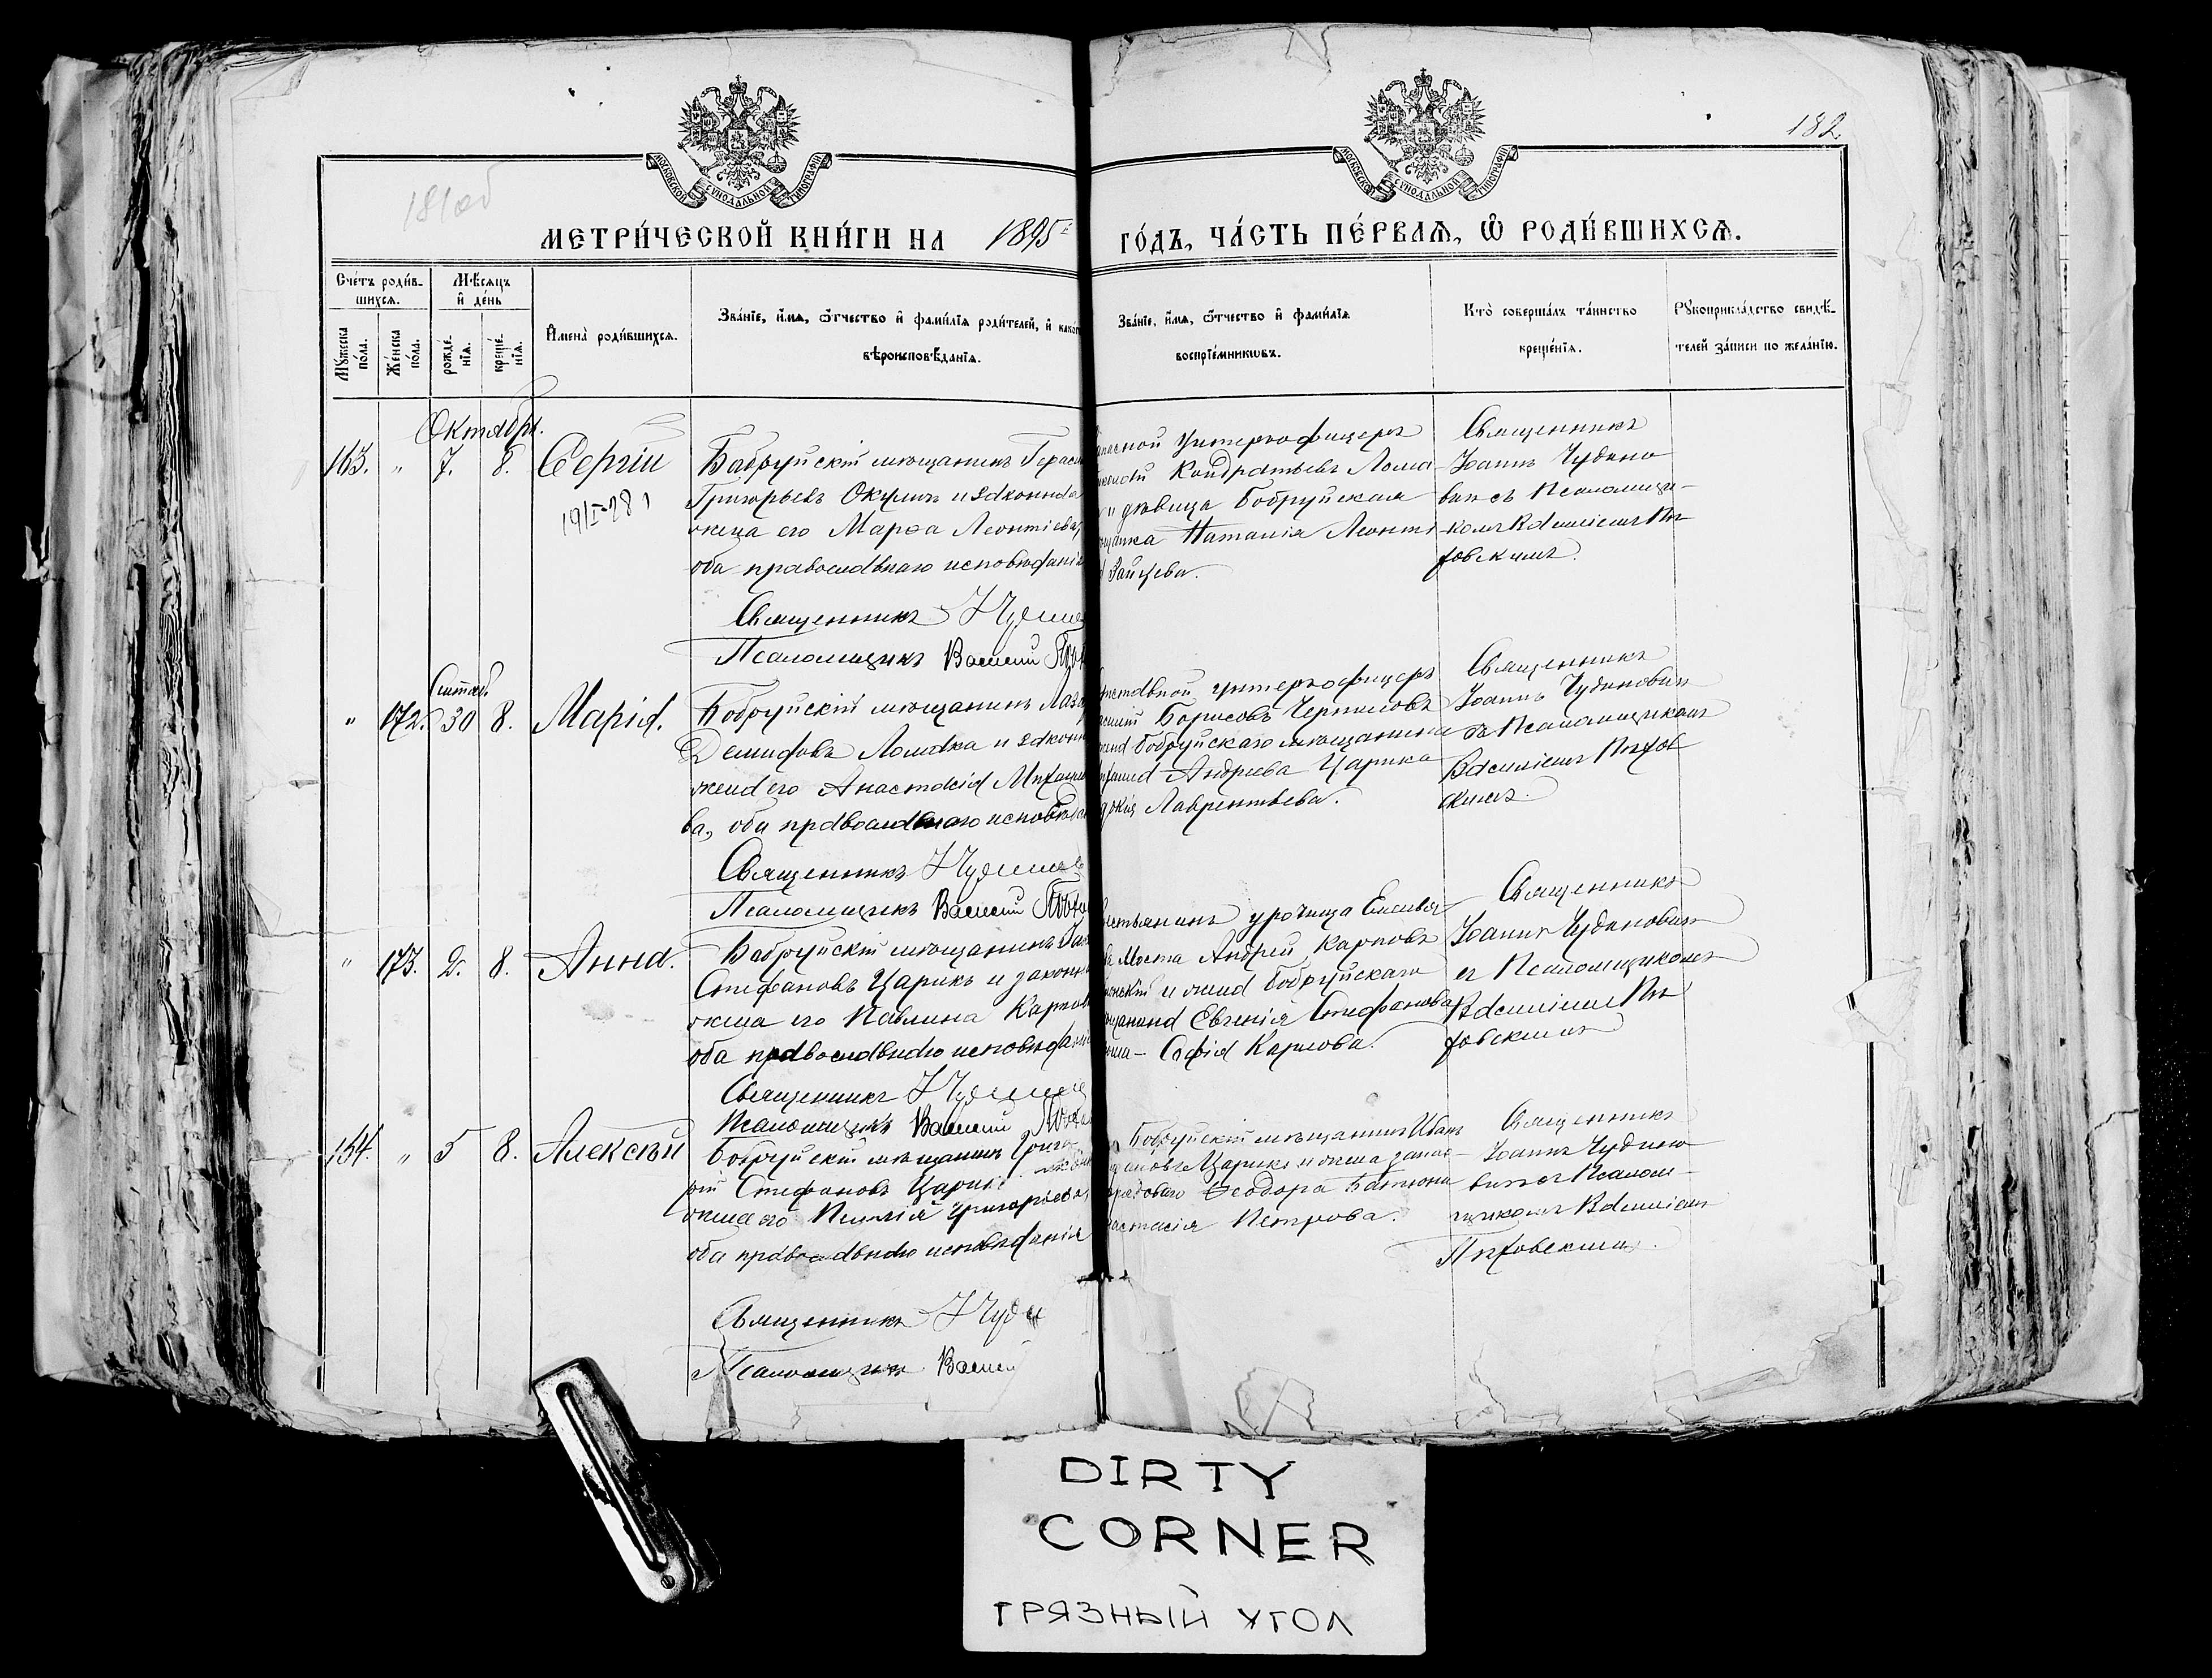 182.
181об
МОСКОВСКОЙ СѴНОДАЛЬНОЙ ТИПОГРАФІИ
МОСКОВСКОЙ СѴНОДАЛЬНОЙ ТИПОГРАФІИ
МЕТРИ́ЧЕСКОЙ КНИ́ГИ НА 1895 ГО́ДЪ, ЧА́СТЬ ПЕ́РВАѦ, Ѡ РОДИ́ВШИХСѦ.
Сче́тъ роди́в-
шихсѧ.
Мꙋ́жеска по́ла.
Же́нска по́ла.
Мѣ́сѧцъ
и де́нь
рожде-
нїѧ.
креще́-
нїѧ.
И҆мена̀ роди́вшихсѧ.
Зва́нїе, и҆́мѧ, ѻ҆́тчество и҆ фами́лїѧ роди́телей, и҆ како́г
вѣроисповѣ́данїѧ.
Зва́нїе, и҆́мѧ, ѻ҆́тчество и҆ фами́лїѧ
воспрїе́мникѡвъ.
Кто̀ соверша́лъ та́инство
креще́нїѧ.
Рꙋкоприкла́дство свидѣ́-
телей за́писи по жела́нїю.
Октября.
163. " 7. 8. Сергій
19/I-28
Бобруйскій мѣщанинъ Гераси
Григорьевъ Окуличъ и законна
жена его Марѳа Леонтіева,
оба православнаго исповѣданія
Священникъ
Псаломщикъ Василій
пасной унтеръ-офицеръ
Кондратьевъ Лома
дѣвица Бобруйская
щанка Наталія Леонті
Зайцева.
Священникъ
Іоаннъ Чудино
вич съ Псаломщи-
комъ Василіемъ Пѣ
ховскимъ.
Сентяб
" 172. 30 8. Марія.
Бобруйскій мѣщанинъ Лаза
Демидовъ Ломака и законн
жена его Анастасія Михаи
ва, оба православнаго исповѣдан
Священникъ
Псаломщикъ Василій
унтеръ-офицеръ
Борисовъ Черниловъ
Бобруйскаго мѣщанина
Андреева Царика
Лаврентьева.
Священникъ
Іоаннъ Чудиновичъ
съ Псаломщикомъ
Василіемъ Пѣхов
скимъ.
" 173. 2. 8. Анна.
Бобруйскій мѣщанинъ
Стефановъ Царикъ и законн
жена его Павлина Карпов
оба православнаго исповѣдані
Священникъ
Псаломщикъ Василій
стьянинъ урочища
Моста Андрей Карповъ
и жена Бобруйскаго
щанина Евгенія Стефанова
Софія Карпова.
Священникъ
Іоаннъ Чудиновичъ
съ Псаломщикомъ
Василіемъ Пѣ
ховскимъ
164. " 5 8. Алексѣй
Бобруйскій мѣщанинъ Григо
рій Стефановъ Царикъ
жена его Григорьева,
оба православнаго исповѣданія
Священникъ
Псаломщикъ Василій
Бобруйскій мѣщанинъ Иванъ
Царикъ и жена запас-
Ѳеодора
астасія Петрова.
Священникъ
Іоаннъ Чудино
вичъ съ Псалом-
щикомъ Василіемъ
Пѣховскимъ.
DIRTY
CORNER
ГРЯЗНЫЙ УГОЛ